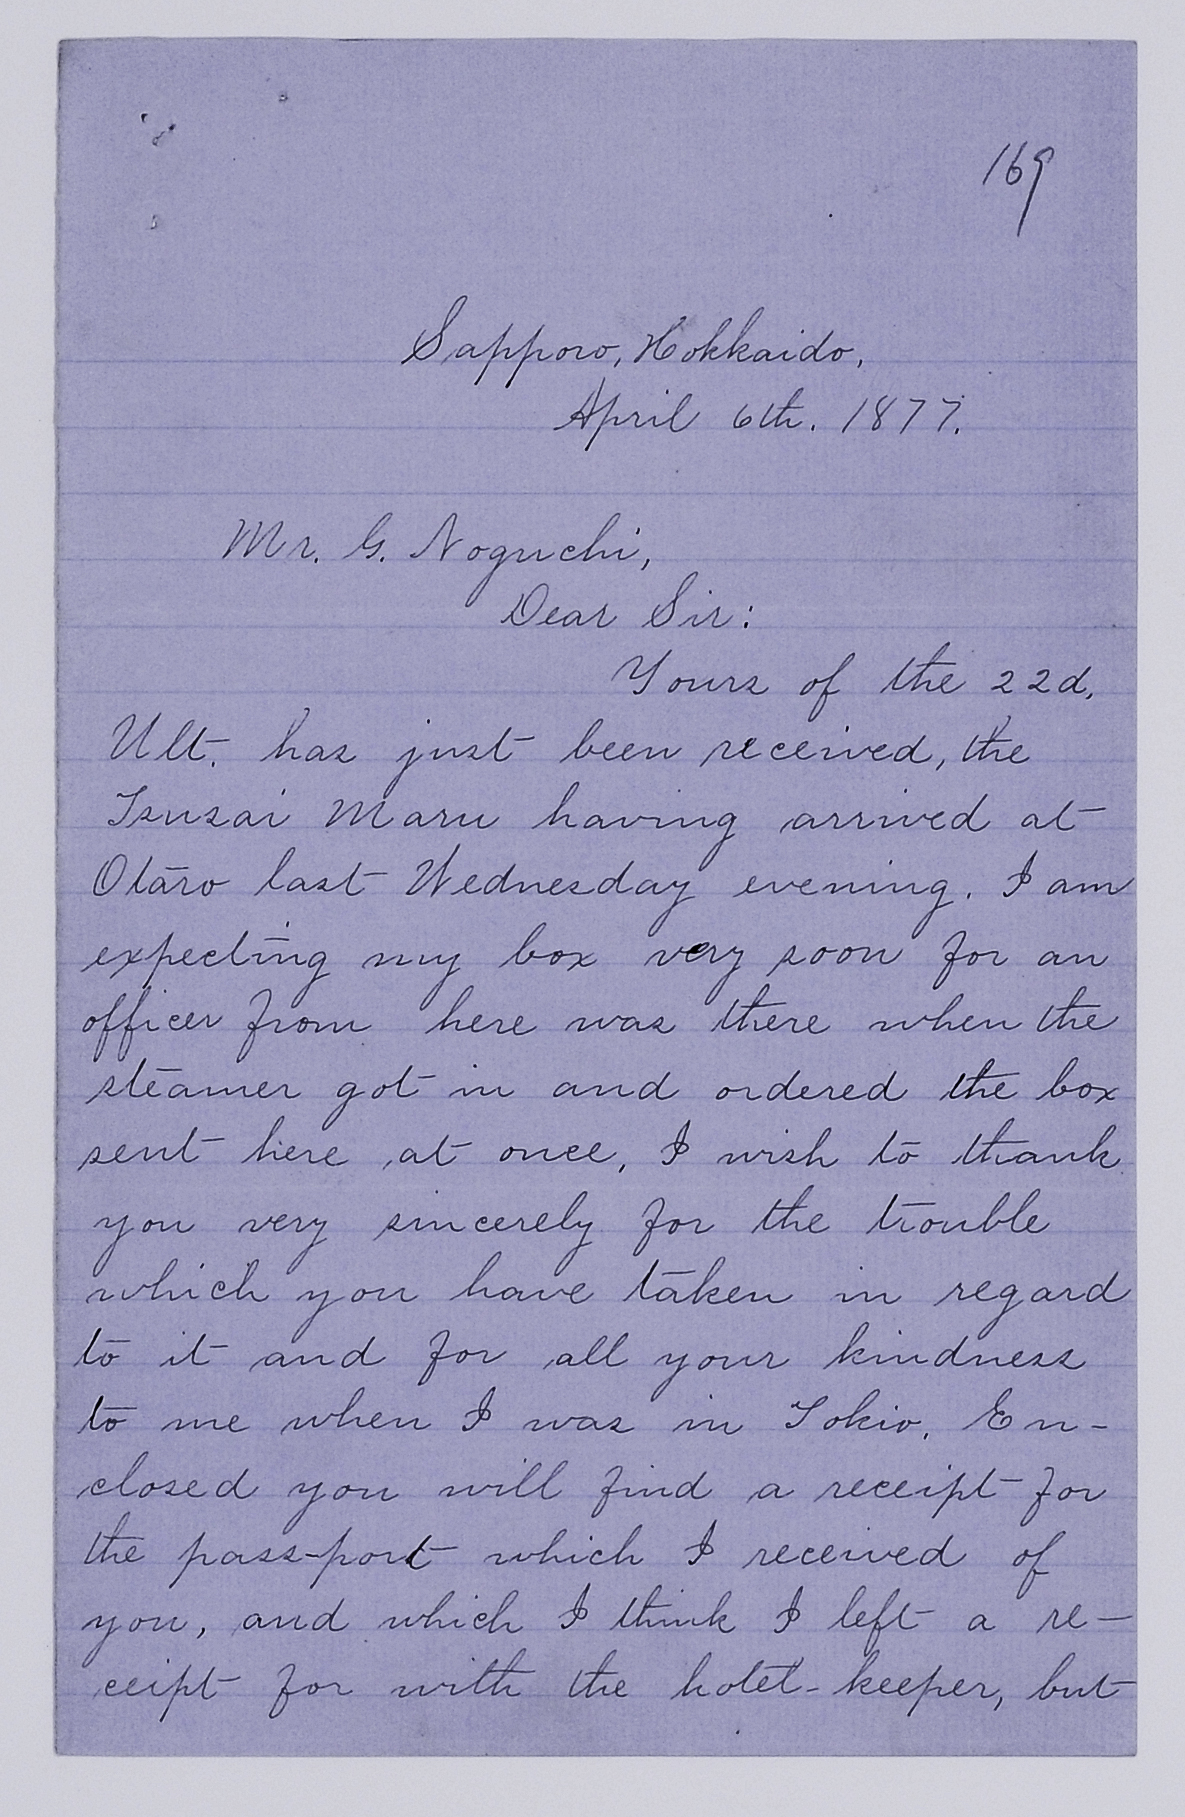 169
Sapporo, Hokkaido,
April 6th. 1877.
Mr. G. Noguchi,
Dear Sir:
Yours of the 22d,
Ult. has just been received, the
Tsuzai Maru having arrived at
Otaro last Wednesday evening. I am
expecting my box very soon for an
officer from here was there when the
steamer got in and ordered the box
sent here at once, I wish to thank
you very sincerely for the trouble
which you have taken in regard
to it and for all your kindness
to me when I was in Tokio. En-
closed you will find a receipt for
the pass-port which I received of
you, and which I think I left a re-
ceipt for with the hotel-keeper, but